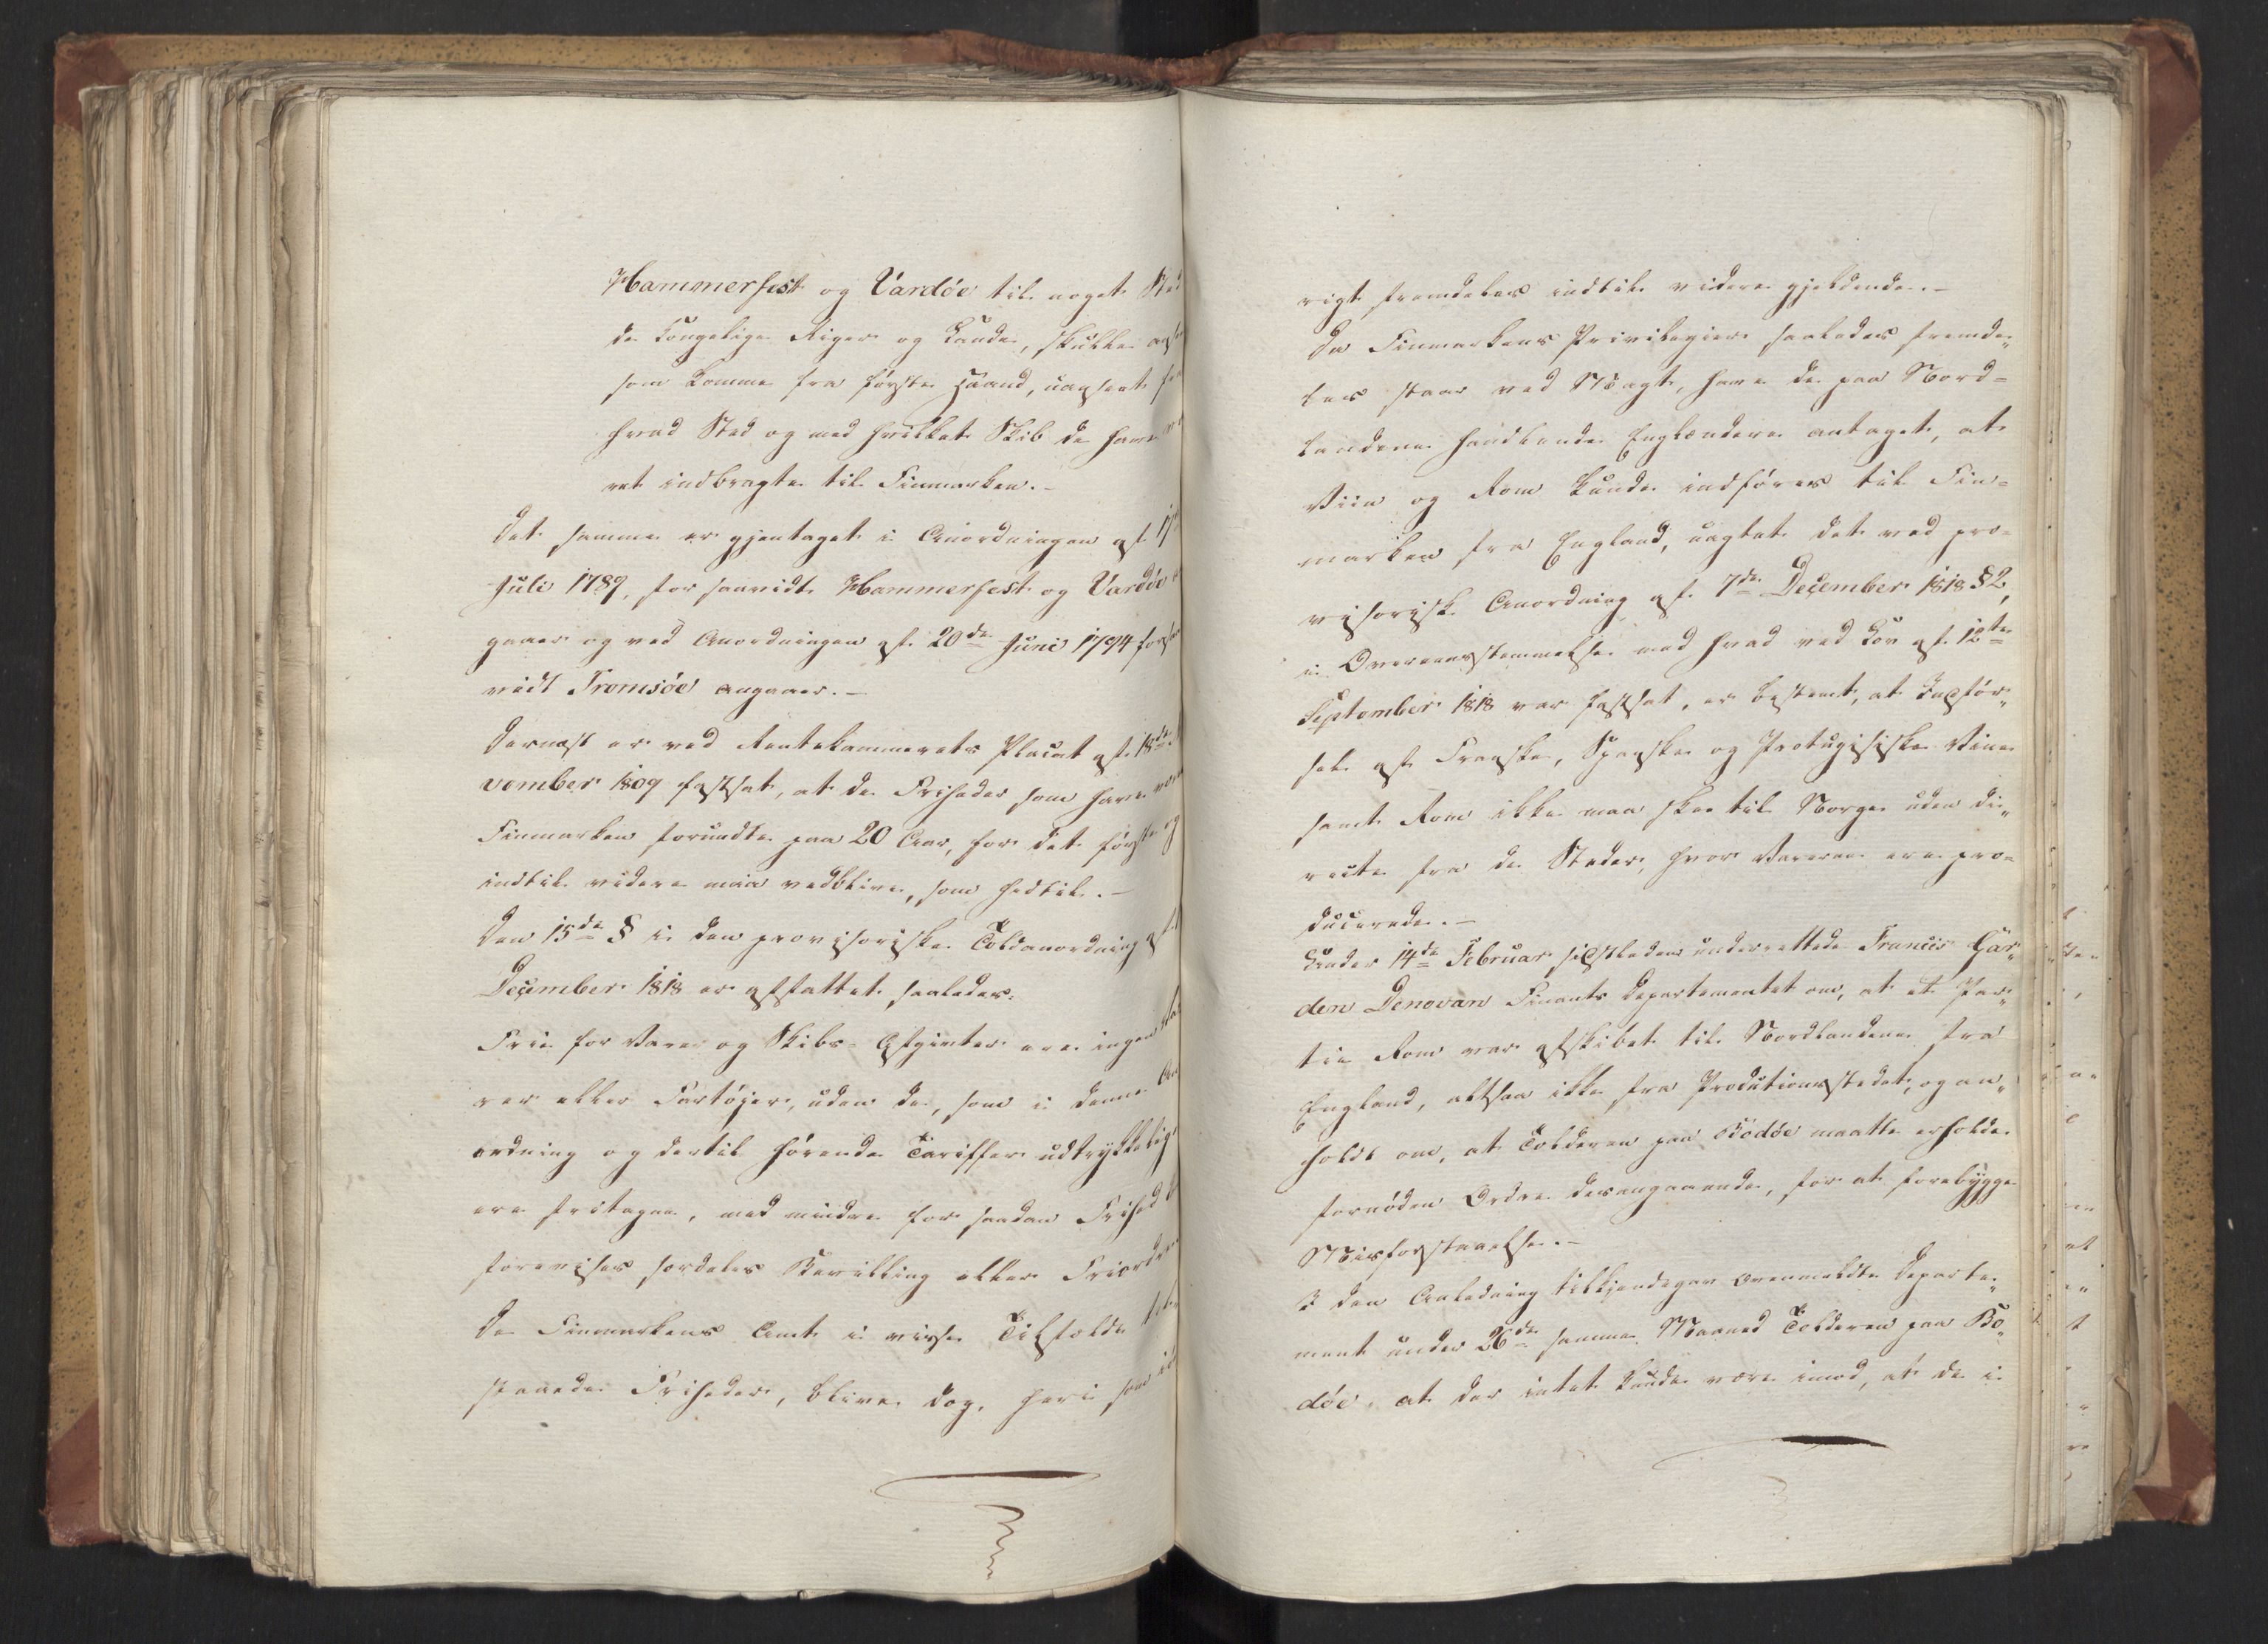 Hammerfest og Vardøe til noget Sted
de Kongelige Riger og Lande, skulle anse
som komme fra første Haand, uanseet fra
hvad Sted og med hvilket Skib de have
ret indbragte til Finmarken.-
Det samme er gjentaget i Anordningen af 17
Julii 1789, for saavidt Hammerfest og Vardøe
gaaer og ved Anordningen af 20de Junii 1794 forsaa
vidt Tromsøe angaaer.-
Dernæst er ved Rentekammerets Placat af 18de
vember 1809 fastsat, at de Friheder som have
Finmarken forundte paa 20 Aar, for det første og
indtil videre maa vedblive, som hidtil.-
Den 15de § i den provisoriske Toldanordning af
December 1818 er affattet saaledes:
Frie for Vare og Skibs-Afgivter ere ingen
rer eller Fartøjer, uden de, som i denne An
ordning og dertil hørende Tariffer udtrykkelig
ere fritagne, med mindre for saadan Frihed
forevises særdeles Bevilling eller
De Finmarkens Amt i visse Tilfælde
staaede Friheder, blive dog, heri som
rigt fremdeles indtil videre gjeldende.-
Da Finmarkens Privilegier saaledes fremde„
les staae ved Magt, have de paa Nord=
landene handlende Englændere antaget, at
Viin og Rom kunde indføres til Fin=
marken fra England, uagtet det ved pro=
visorisk Anordning af 7de December 1818 § 2,
i Overeensstemmelse med hvad ved Lov af 12te
September 1818 var fastsat, er bestemt, at Indfør„
sel af Franske, Spanske og Protugisiske Vine
samt Rom ikke maa skee til Norge uden di„
recte fra de Steder, hvor Varerne ere pro=
ducerede.-
Under 14de Februar sidstleden underrettede Francis Gar„
den Donovan Finants Departementet om, at et Par„
tie Rom var afskibet til Nordlandene fra
England, altsaa ikke fra Productionsstedet, og an„
holdt om, at Tolderen paa Bodøe maatte erholde
fornøden Ordre desangaaende, for at forebygge
Misforstaaelse.-
I den Anledning tilkjendegav ovenmeldte Departe„
ment under 26de samme Maaned Tolderen paa Bo„
døe, at der intet kunde være imod, at de i